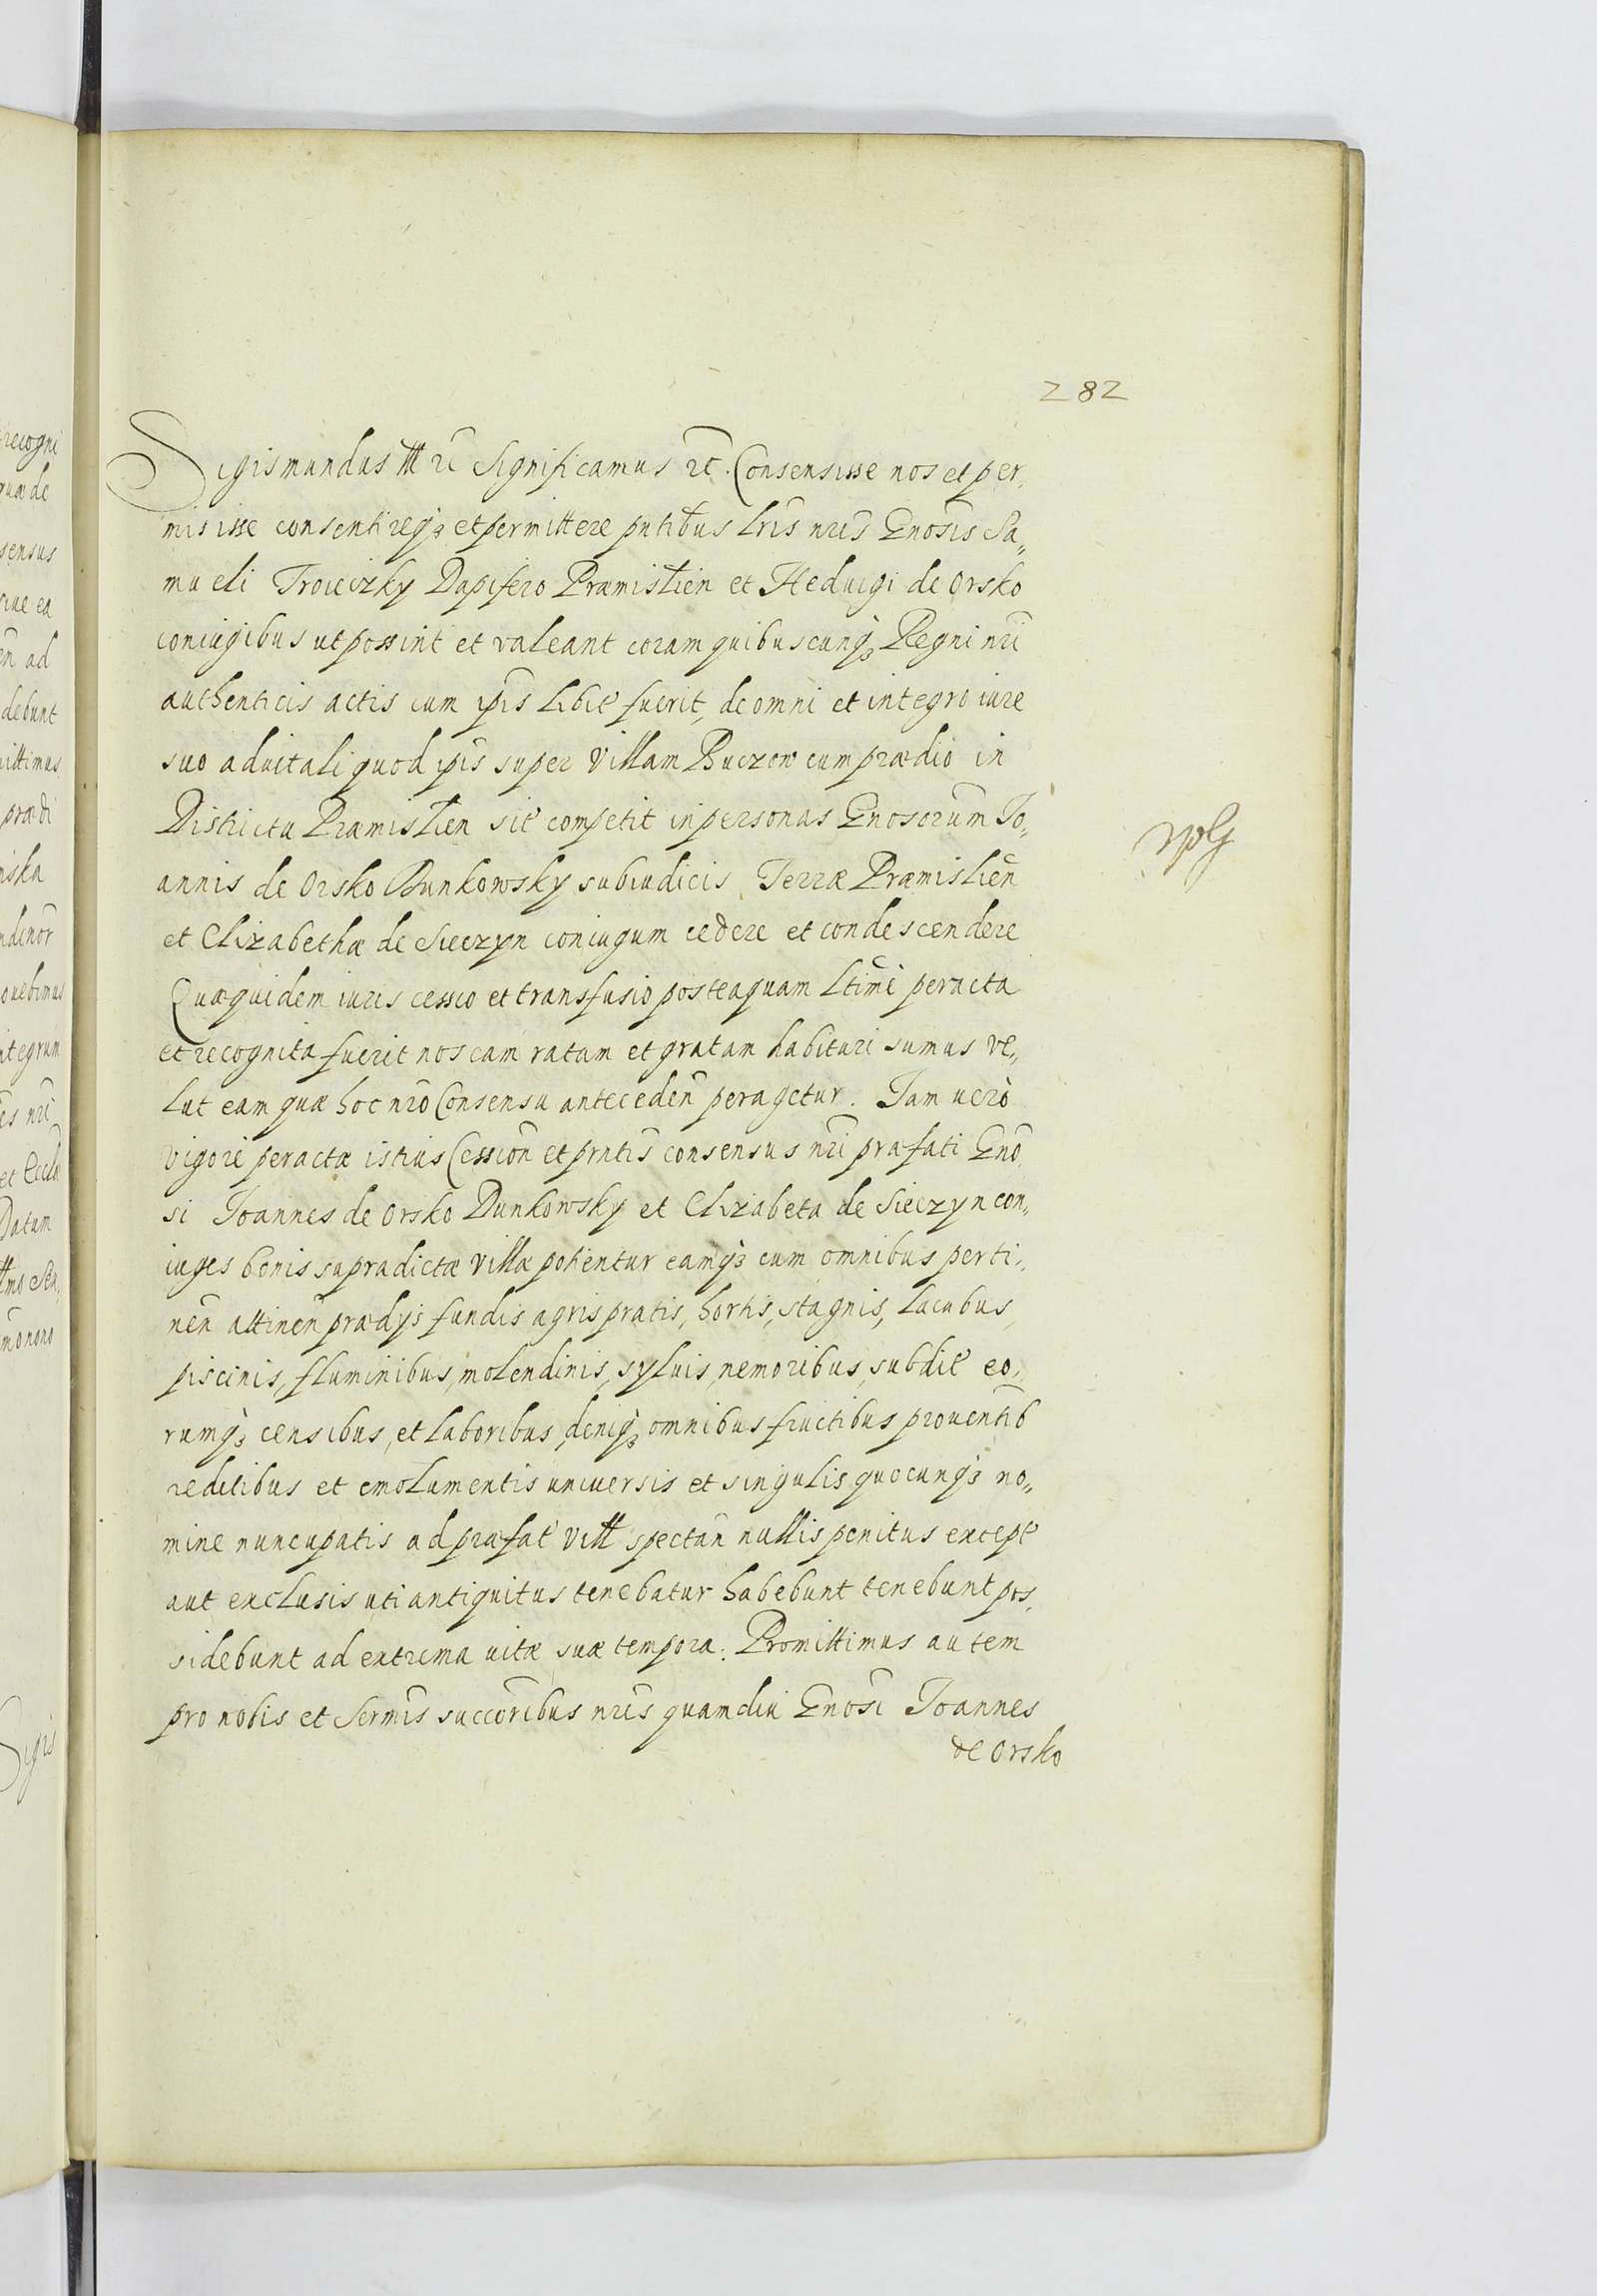 282
Sigismundus III rc̄ Significamus rc̄. Consensisse nos et per,
misisse consentireq₃ et permittere pn̄tibus lr̄is nr̄is Gn̄osis Sa„
mueli Troieczky Dapifero Præmislien̄ et Heduigi de Orsko
coniugibus ut possint et valeant coram quibuscunq₃ Regni nr̄i
authenticis actis cum ip̄is libit̄ fuerit, de omni et integro iure
suo aduitali quod ip̄is super Villam Buczow cum prædio in
Districtu Præmislien̄ sit̄ competit in personas Gn̄osorum Io„
annis de Orsko Dunkowsky subiudicis Terræ Præmislien̄
et Elizabethæ de Sieczyn coniugum cedere et condescendere
Quæquidem iuris cessio et transfusio posteaquam ltīme peracta
et recognita fuerit nos eam ratam et gratam habituri sumus ve„
lut eam quæ hoc nr̄o Consensu anteceden̄ peragetur. Iam uerò
vigore peractæ istius Cession̄ et pn̄tis consensus nr̄i præfati Gn̄o
si Ioannes de Orsko Dunkowsky et Elizabeta de Sieczyn con„
iuges bonis supradictæ villæ potientur eamq₃ cum omnibus perti„
nen̄ attinen̄ prædys fundis agris pratis, hortis, stagnis, lacubus,
piscinis, fluminibus, molendinis, syluis, nemoribus, subdit̄ eo„
rumq₃ censibus, et laboribus, deniq₃ omnibus fructibus prouentib̄
reditibus et emolumentis uniuersis et singulis quocunq₃ no„
mine nuncupatis ad præfat̄ Vill spectan̄ nullis penitus except̄
aut exclusis uti antiquitus tenebatur habebunt tenebunt pos,
sidebunt ad extrema uitæ suæ tempora. Promittimus autem
pro nobis et Serm̄is succoribus nr̄is quamdiu Gn̄osi Ioannes
de Orsko